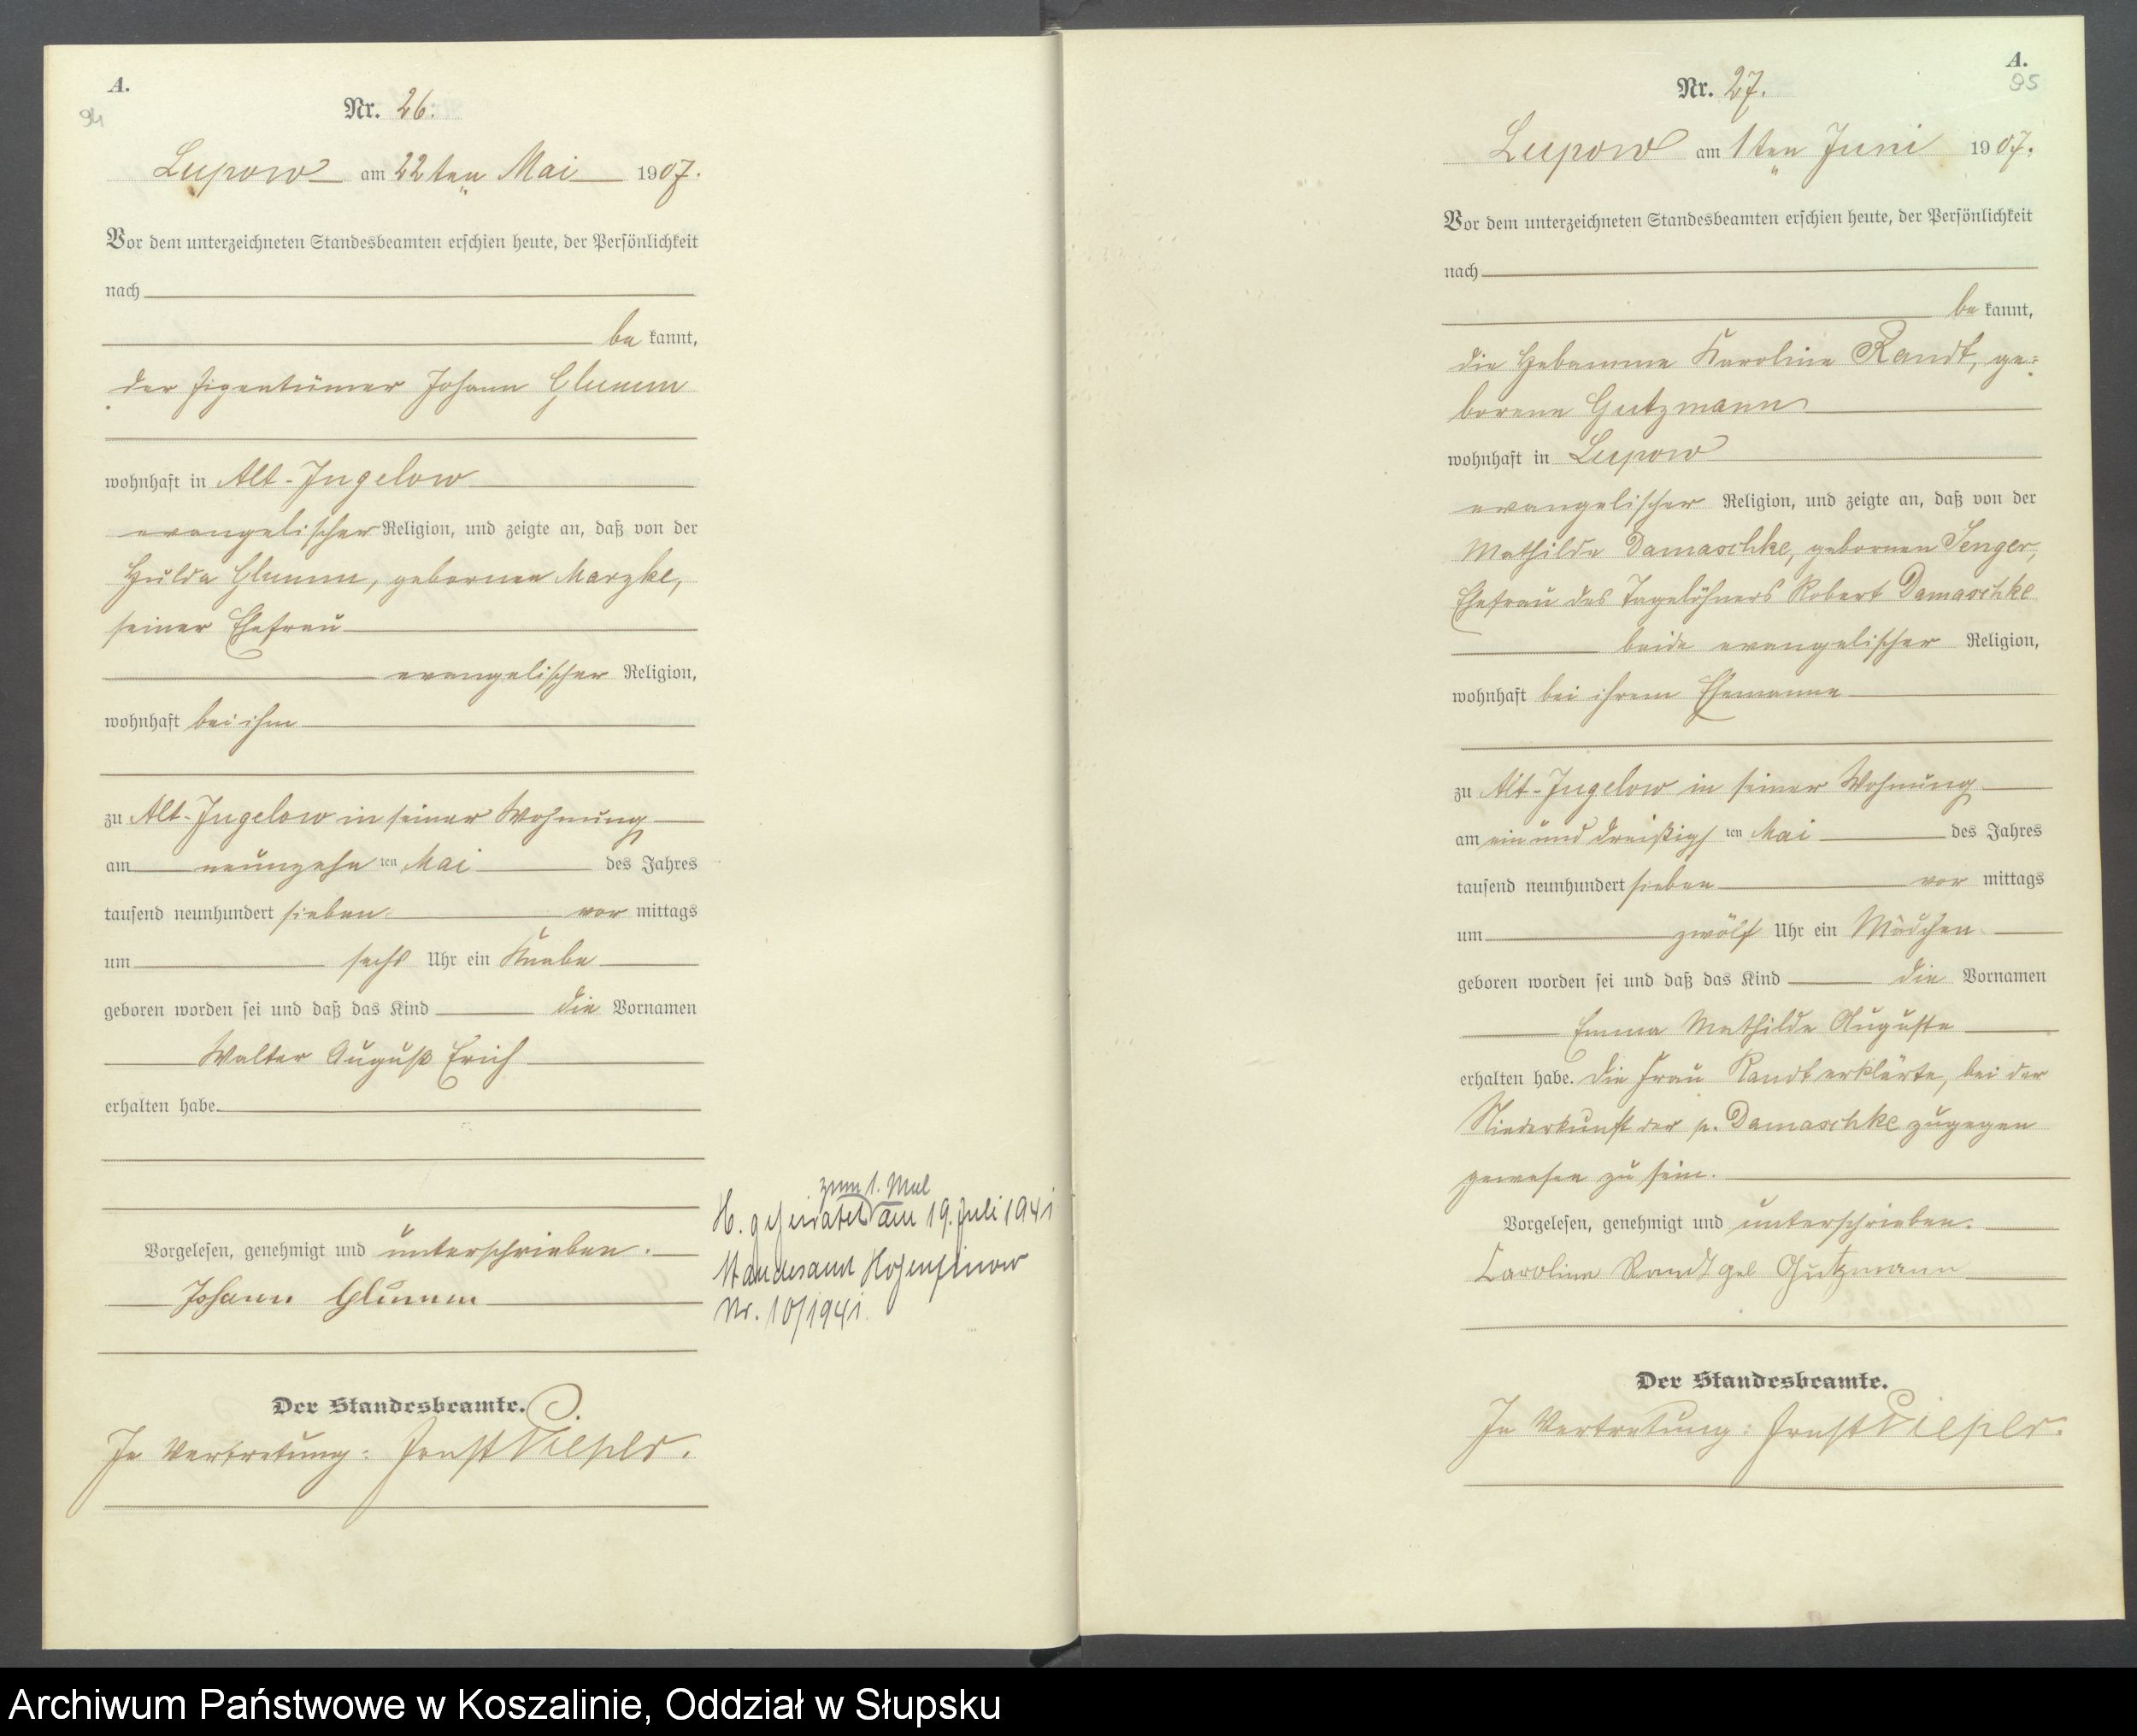 A.
94
Nr. 26.
Lupow am 22ten Mai 1907.
Vor dem unterzeichneten Standesbeamten erschien heute, der Persönlichkeit
nach
be kannt,
der Eigentümer Johann Glumm
wohnhaft in Alt-Jugelow
evangelischer Religion, und zeigte an, daß von der
Hulda Glumm, gebornen Marzke,
seiner Ehefrau
evangelischer Religion,
wohnhaft bei ihm
zu Alt-Jugelow in seiner Wohnung
am neunzehn ten Mai des Jahres
tausend neunhundert sieben vor mittags
um sechs Uhr ein Knabe
geboren worden sei und daß das Kind die Vornamen
Walter August Erich
erhalten habe.
Vorgelesen, genehmigt und unterschrieben.
Johann Glumm
Der Standesbeamte.
In Vertretung: Ernst Pieper.
zum 1. Mal
H. geheiratet am 19. Juli 1941
Standesamt Hohenfinow
Nr. 10/1941.
A.
95
Nr. 27.
Lupow am 1ten Juni 1907.
Vor dem unterzeichneten Standesbeamten erschien heute, der Persönlichkeit
nach
be kannt,
die Hebamme Karoline Randt, ge=
borene Gutzmann
wohnhaft in Lupow
evangelischer Religion, und zeigte an, daß von der
Mathilde Damaschke, gebornen Senger,
Ehefrau des Tagelöhners Robert Damaschke
beide evangelischer Religion,
wohnhaft bei ihrem Ehemanne
zu Alt-Jugelow in seiner Wohnung
am ein und dreißigs ten Mai des Jahres
tausend neunhundert sieben vor mittags
um zwölf Uhr ein Mädchen
geboren worden sei und daß das Kind die Vornamen
Emma Mathilde Auguste
erhalten habe. Die Frau Randt erklärte, bei der
Niederkunft der p. Damaschke zugegen
gewesen zu sein.
Vorgelesen, genehmigt und unterschrieben.
Caroline Randt geb Gutzmann
Der Standesbeamte.
In Vertretung: Ernst Pieper.
Archiwum Państwowe w Koszalinie, Oddział w Słupsku